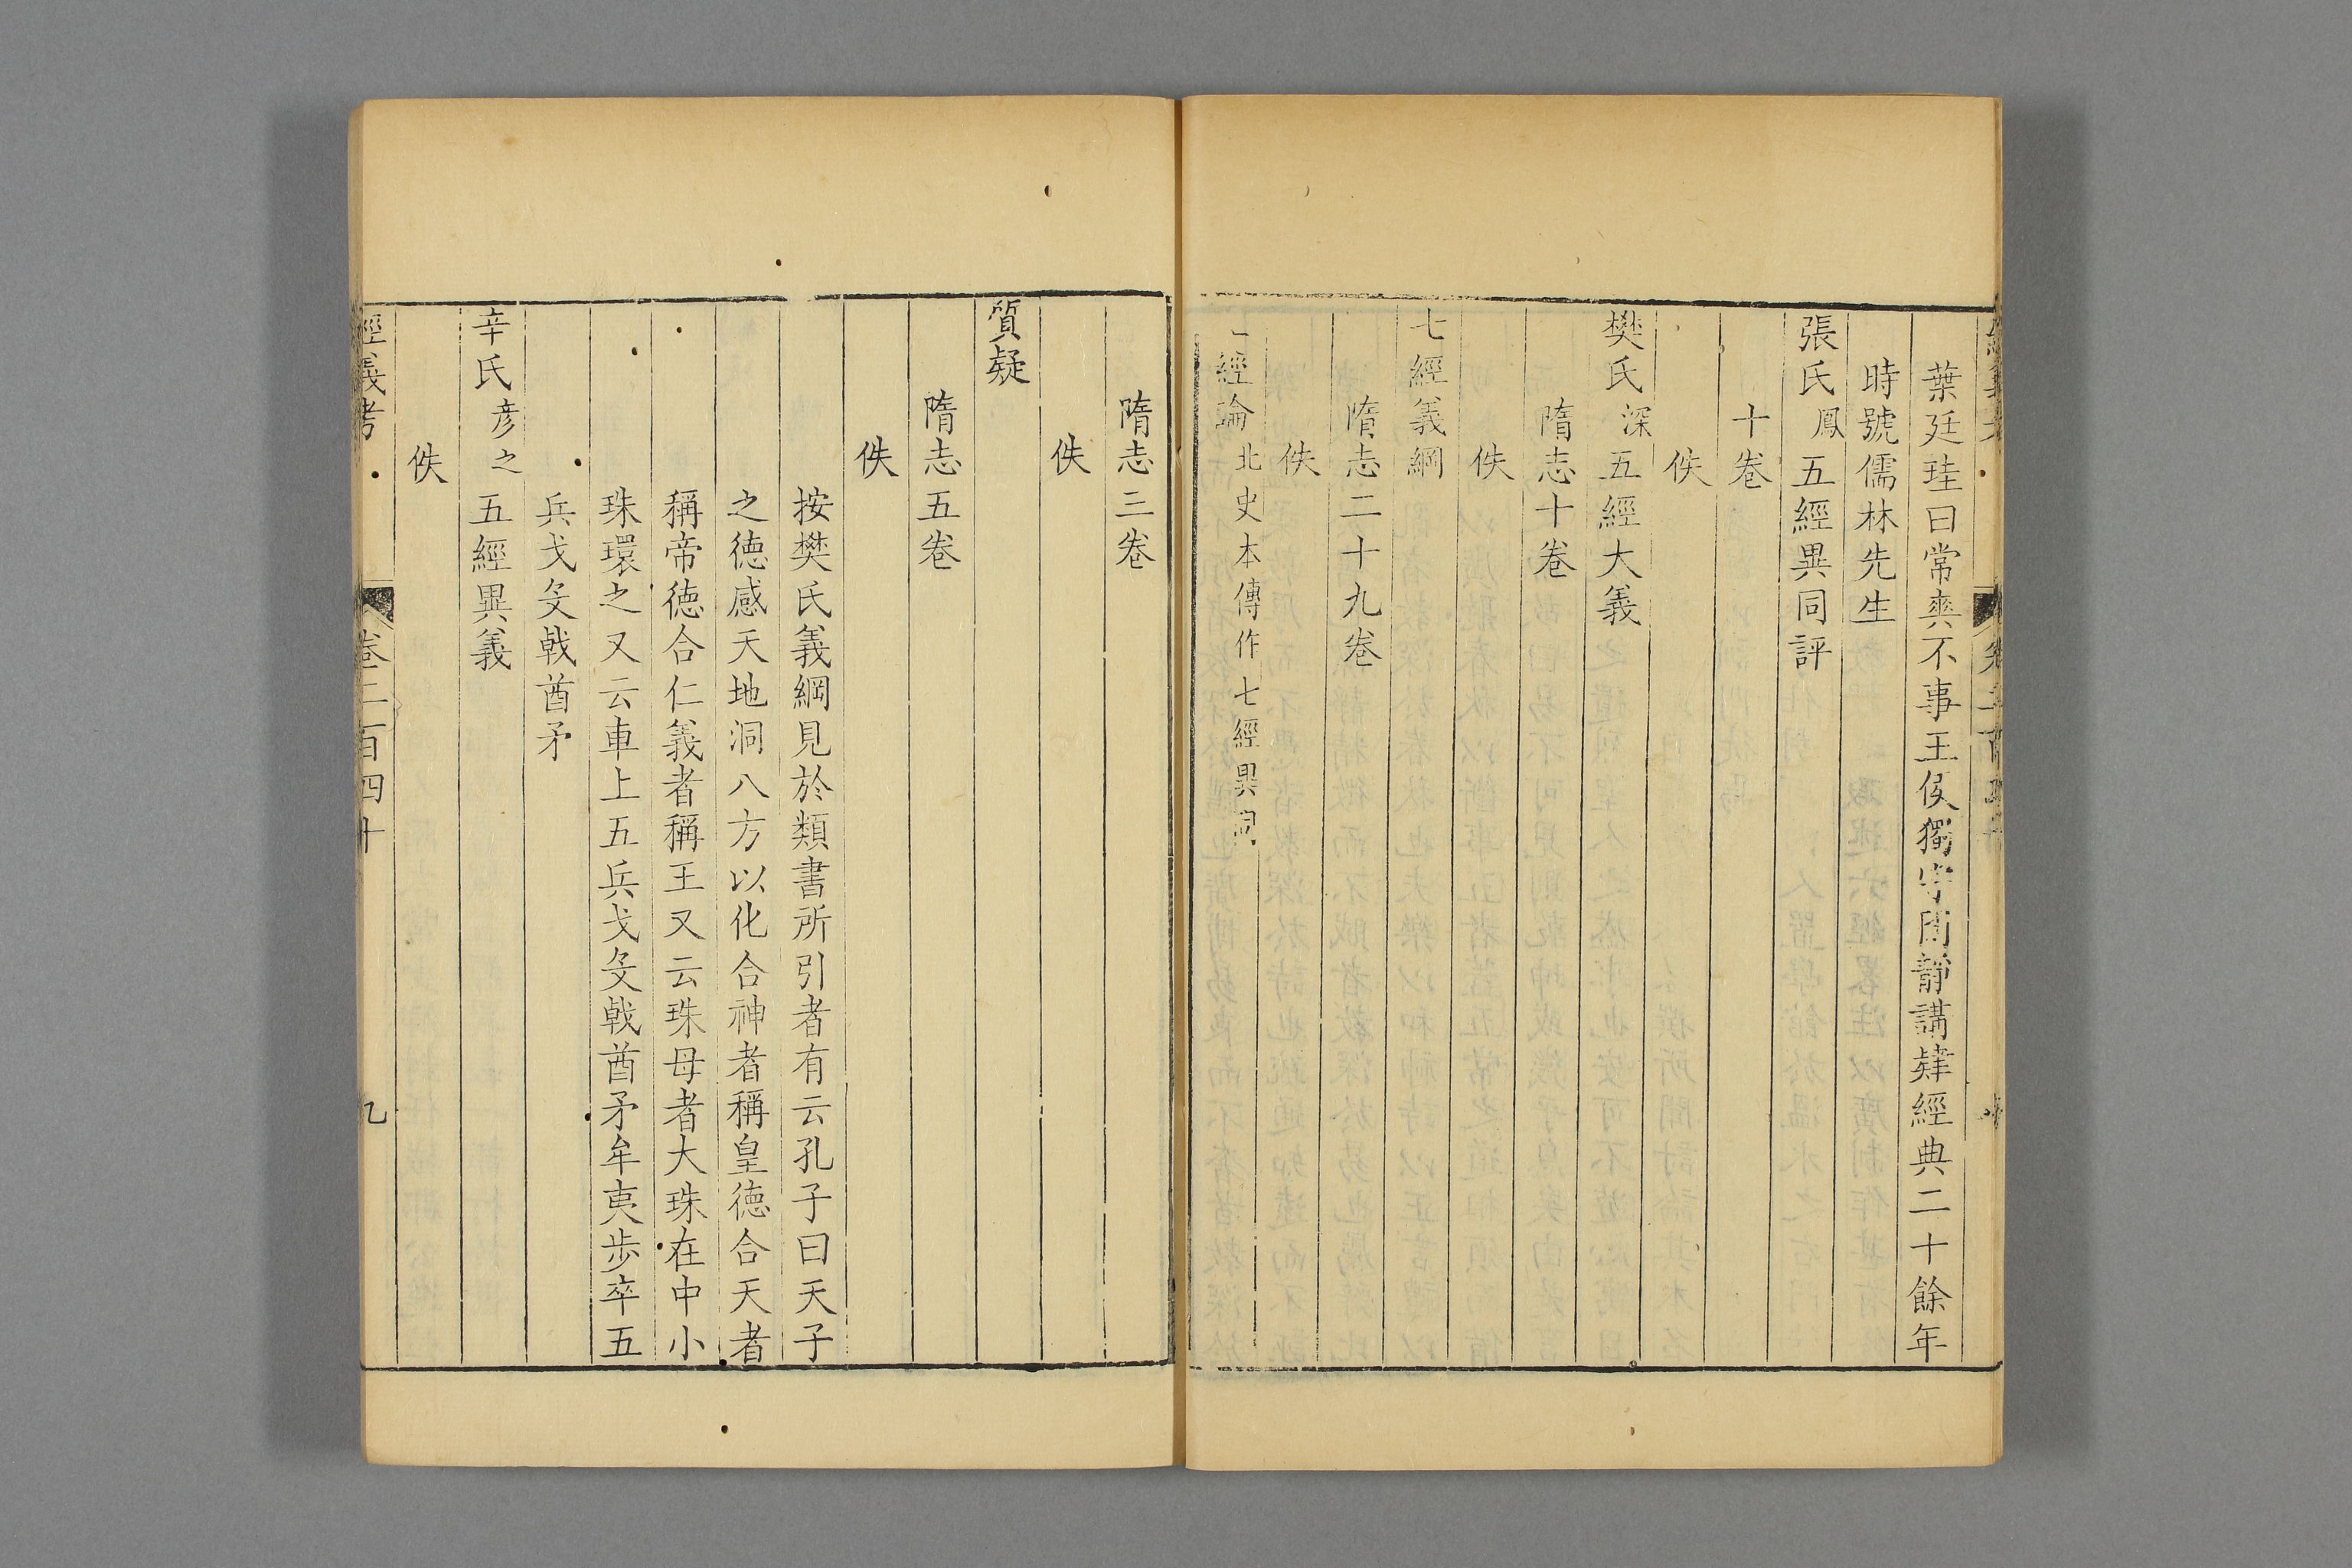 葉廷珪曰常爽不事王侯獨守閒靜講肄經典二十餘年
時號儒林先生
張氏鳳五經異同評
十卷
佚
樊氏深五經大義
隋志十卷
佚
七經義綱
隋志二十九卷
佚
經論北史本傳作七經異同
隋志三卷
佚
質疑
隋志五卷
佚
按樊氏義綱見於類書所引者有云孔子曰天子
之德感天地洞八方以化合神者稱皇德合天者
稱帝德合仁義者稱王又云珠母者大珠在中小
珠環之又云車上五兵戈殳戟酋矛牟夷步卒五
兵戈殳戟酋矛
辛氏彦之五經異義
佚
經義考 卷二百四十 九